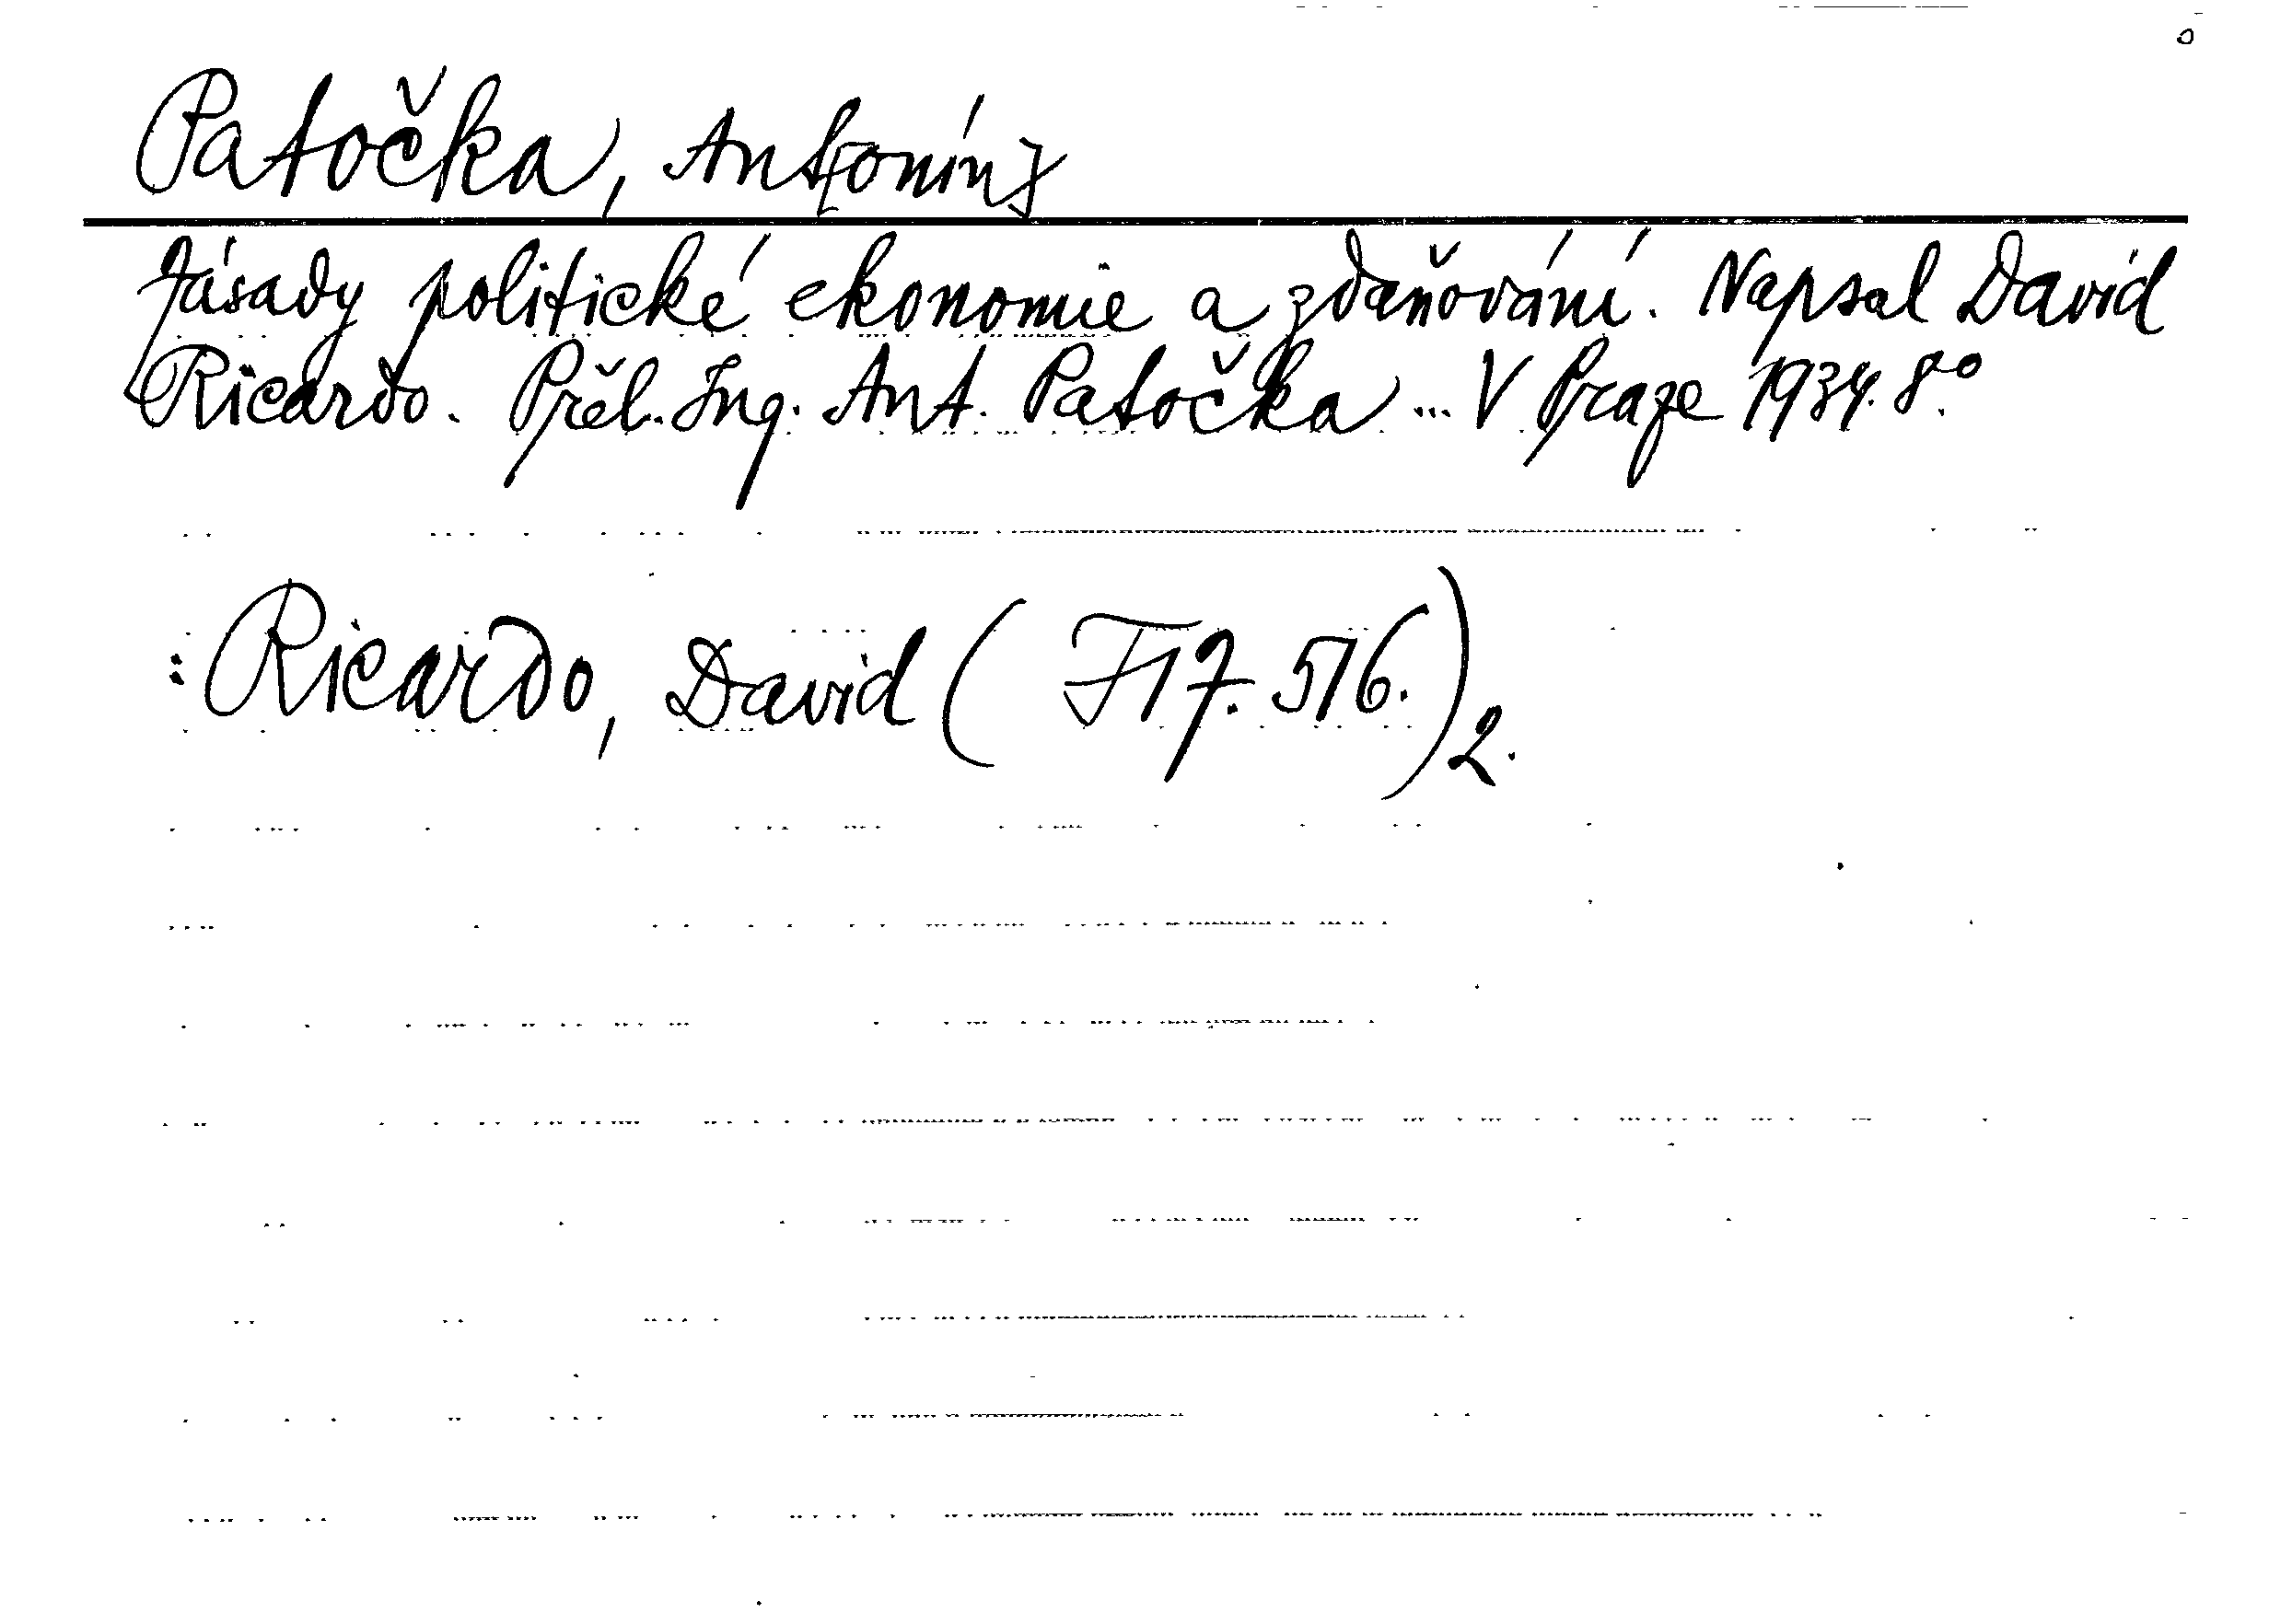 Patočka, Ant[onín]
Zásady politické ekonomie a zdaňování. Napsal David
Ricardo. Přel. Ing. Ant. Patočka ... V Praze 1934. 8°.
: Ricardo, David ( F 17. 516.) 2.